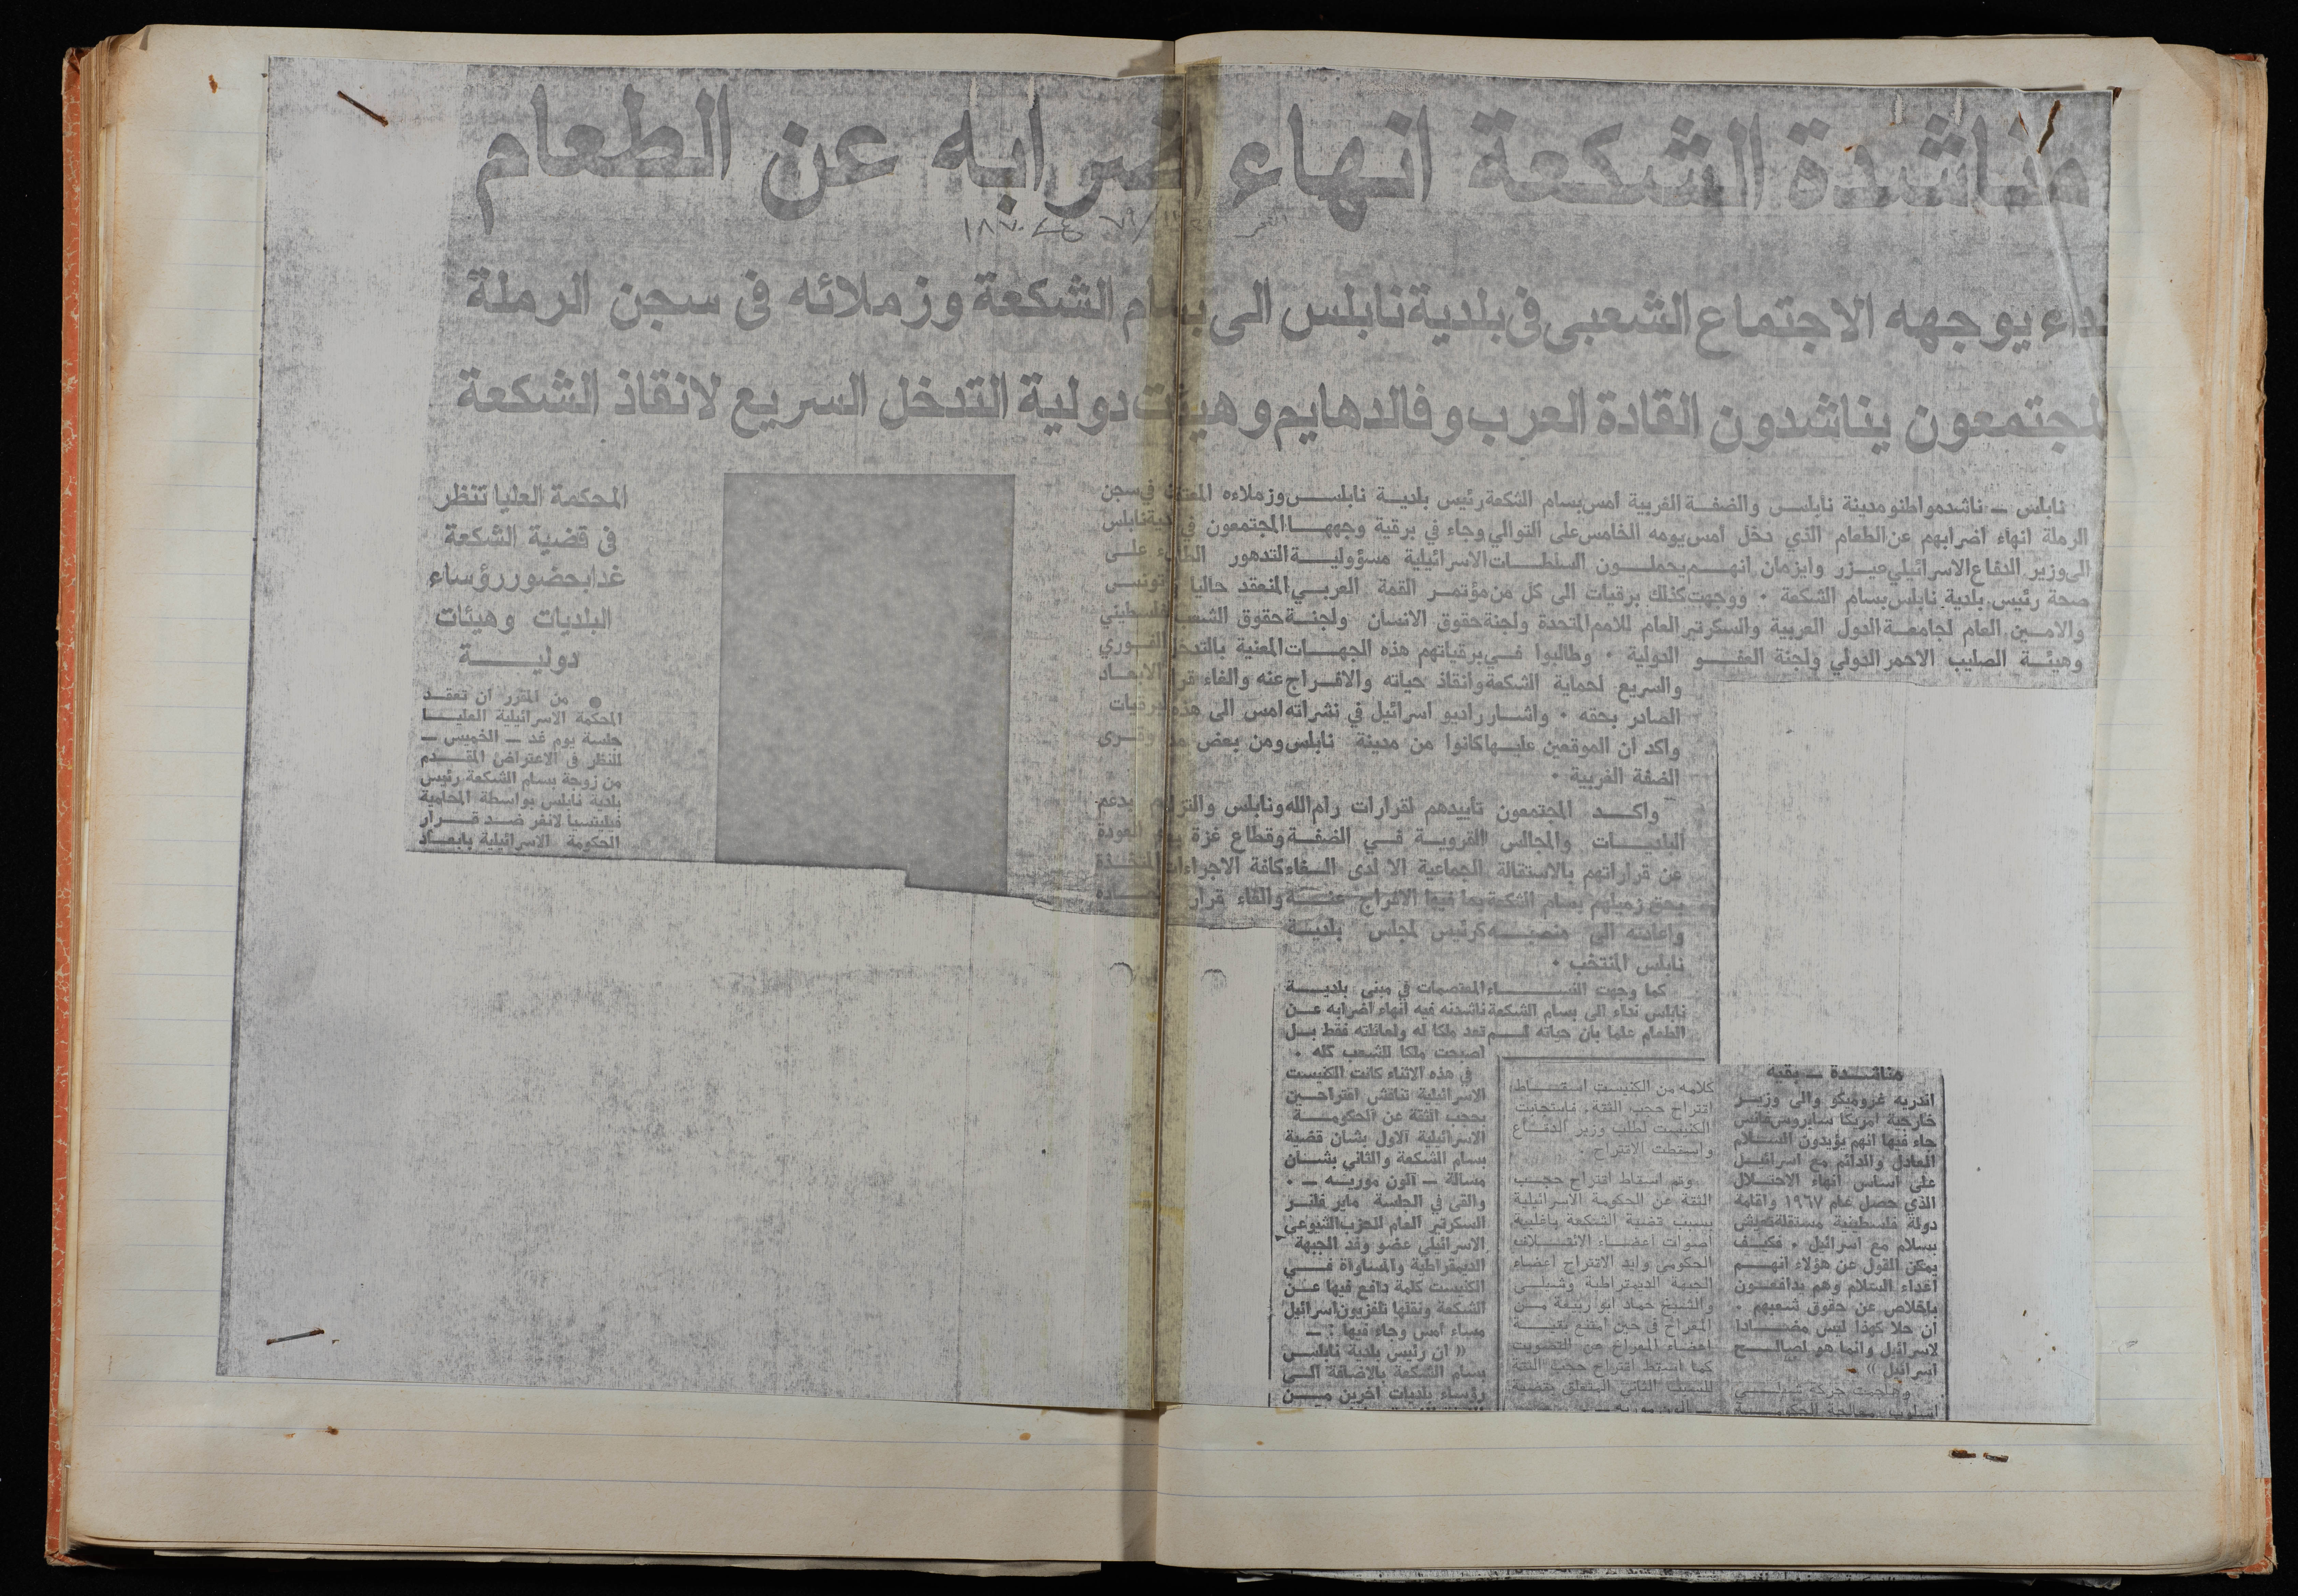 مناشدة الشكعة انهاء اضرابه عن الطعام
نداء يوجهه الاجتماع الشعبى فى بلدية نابلس الى بسام الشكعة وزملائه فى سجن الرملة
المجتمعون يناشدون القادة العرب وفالدهايم وهيئات دولية التدخل السريع لانقاذ الشكعة
نابلس ــ ناشد مواطنو مدينة نابلس والضفة الغربية امس بسام الشكعة رئيس بلدية نابلس وزملاءه في سجن
الرملة انهاء اضرابهم عن الطعام الذي دخل امس يومه الخامس على التوالي وجاء في برقية وجهها المجتمعون في بلدية نابلس
الى وزير الدفاع الاسرائيلي عيزر وايزمان انهم يحملون السلطات الاسرائيلية مسؤولية التدهور الطارىء على
صحة رئيس بلدية نابلس بسام الشكعة ٠ ووجهت كذلك برقيات الى كل من مؤتمر القمة العربي المنعقد حاليا تونس
والامين العام لجامعة الدول العربية والسكرتير العام للامم المتحدة ولجنة حقوق الانسان ولجنة حقوق الشعب الفلسطيني
وهيئة الصليب الاحمر الدولي ولجنة العفو الدولية ٠ وطالبوا في برقياتهم هذه الجهات المعنية بالتدخل الفوري
والسريع لحماية الشكعة وانقاذ حياته والافراج عنه والغاء قرار الابعاد
الصادر بحقه ٠ واشار راديو اسرائيل في نشراته امس الى هذه البرقيات
واكد ان الموقعين عليها كانوا من مدينة نابلس ومن بعض مدن وقرى
الضفة الغربية ٠
واكد المجتمعون تاييدهم لقرارات رام الله ونابلس والتزامهم بدعم
البلديات والمجالس القروية في الضفة وقطاع غزة العودة
عن قراراتهم بالاستقالة الجماعية الا لدى الغاء كافة الاجراءات المتخذة
بحق زميلهم بسام الشكعة بما فيها الافراج عنه والغاء قرار
واعادته الى منصبه كرئيس لمجلس بلدية
نابلس المنتخب ٠
كما وجهت النساء المعتصمات في مبنى بلدية
نابلس نداء الى بسام الشكعة ناشدنه فيه انهاء اضرابه عن
الطعام علما بان حياته لم تعد ملكا له ولعائلته فقط بل
اصبحت ملكا للشعب كله ٠
في هذه الاثناء كانت الكنيست
الاسرائيلية تناقش اقتراحين
بحجب الثقة عن الحكومة
الاسرائيلية الاول بشان قضية
بسام الشكعة والثاني بشان
مسالة ــ الون موريه ــ ٠
والقى في الجلسة ماير فلنر
السكرتير العام للحزب الشيوعي
الاسرائيلي عضو وفد الجبهة
الديمقراطية والمساواة في
الكنيست كلمة دافع فيها عن
الشكعة ونقلها تلفزيون اسرائيل
مساء امس وجاء فيها : ــ
« ان رئيس بلدية نابلس
بسام الشكعة بالاضافة الى
رؤساء بلديات اخرين من
مناشدة ــ بقية
اندريه غروميكو والى وزير
خارجية امريكا سايروس فانس
جاء فيها انهم يؤيدون السلام
العادل والدائم مع اسرائيل
على اساس انهاء الاحتلال
الذي حصل عام ١٩٦٧ واقامة
دولة فلسطينية مستقلة تعيش
بسلام مع اسرائيل ٠ فكيف
يمكن القول عن هؤلاء انهم
اعداء السلام وهم يدافعون
باخلاص عن حقوق شعبهم ٠
ان حلا كهذا ليس مضادا
لاسرائيل وانما هو لصالح
اسرائيل »
وهاجمت حركة شيلي
اسلوب معالجة الحكومة
كلامه من الكنيست اسقاط
اقتراح حجب الثقة ٠ فاستجابت
الكنيست لطلب وزير الدفاع
واسقطت الاقتراح ٠
وتم اسقاط اقتراح حجب
الثقة عن الحكومة الاسرائيلية
بسبب قضية الشكعة باغلبية
اصوات اعضاء الائتلاف
الحكومى وايد الاقتراح اعضاء
الجبهة الديمقراطية وشيلي
والشيخ حماد ابو ربيعة من
المعراخ فى حين امتنع بقية
اعضاء المعراخ عن التصويت
كما اسقط اقتراح حجب الثقة
للسبب الثاني المتعلق بقضية
المحكمة العليا تنظر
فى قضية الشكعة
غدا بحضور رؤساء
البلديات وهيئات
دولية
● من المقرر ان تعقد
المحكمة الاسرائيلية العليا
جلسة يوم غد ــ الخميس ــ
للنظر فى الاعتراض المقدم
من زوجة بسام الشكعة رئيس
بلدية نابلس بواسطة المحامية
فيليتسيا لانغر ضد قرار
الحكومة الاسرائيلية بابعاد